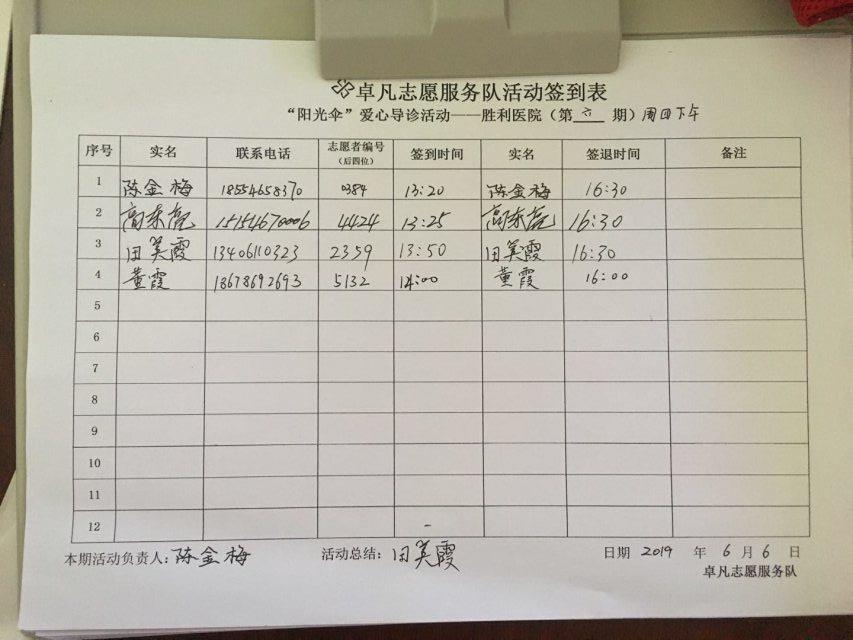 卓凡志愿服务队活动签到表
“阳光伞”爱心导诊活动——胜利医院（第 六 期）周四下午
序号 实名 联系电话 志愿者编号（后四位） 签到时间 实名 签退时间 备注
1 陈金梅 18554658370 0384 13:20 陈金梅 16:30
2 15154670006 4424 13:25 16:30
3 田美霞 13406110323 2359 13:50 田美霞 16:30
4 董霞 18678692693 5132 14:00 董霞 16:00
5
6
7
8
9
10
11
12
本期活动负责人：陈金梅 活动总结：田美霞 日期 2019 年 6 月 6 日
卓凡志愿服务队